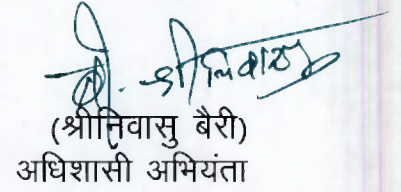 बी. श्रीनिवासु
(श्रीनिवासु बैरी)
अधिशासी अभियंता